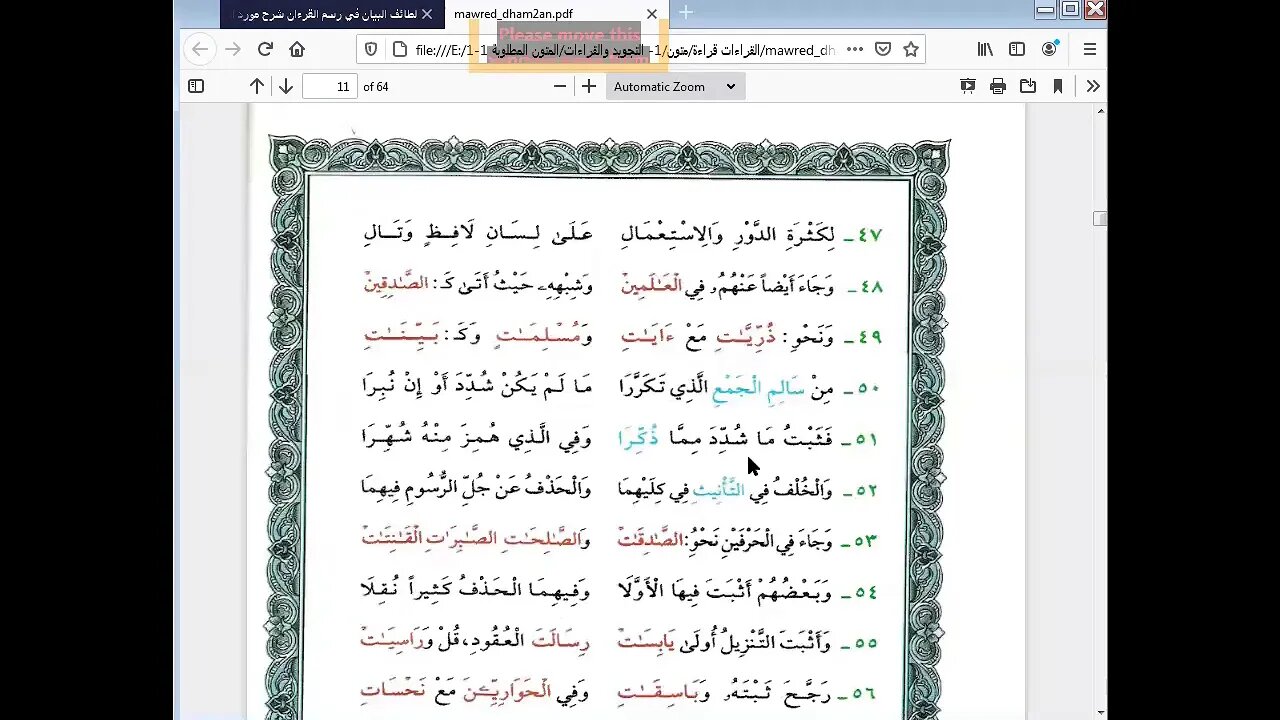 لطائف البيان في رسم القرءان شرح مورد ا
mawred_dham2an.pdf
Please move this
file:///E:/1-1 التجويد والقراءات/المتون المطلوبة -1/القراءات قراءة/متون/mawred_dh
11 of 64
Automatic Zoom
٤٧ـ لِكَثْرَةِ الدَّوْرِ وَالِاسْتِعْمَالِ عَلَىٰ لِسَانِ لَافِظٍ وَتَالِ
٤٨ـ وَجَاءَ أَيْضاً عَنْهُمُۥ فِي الْعَٰلَمِينْ وَشِبْهِهِۦ حَيْثُ أَتَىٰ كَـ: الصَّٰدِقِينْ
٤٩ـ وَنَحْوِ: ذُرِّيَّٰتِ مَعْ ءَايَٰتِ وَمُسْلِمَٰتٍ وَكَـ: بَيِّنَٰتِ
٥٠ـ مِنْ سَالِمِ الْجَمْعِ الَّذِي تَكَرَّرَا مَا لَمْ يَكُنْ شُدِّدَ أَوْ إِنْ نُبِرَا
٥١ـ فَثَبْتُ مَا شُدِّدَ مِمَّا ذُكِّرَا وَفِي الَّذِي هُمِزَ مِنْهُ شُهِّرَا
٥٢ـ وَالْخُلْفُ فِي التَّأْنِيثِ فِي كِلَيْهِمَا وَالْحَذْفُ عَنْ جُلِّ الرُّسُومِ فِيهِمَا
٥٣ـ وَجَاءَ فِي الْحَرْفَيْنِ نَحْوُ: الصَّٰدِقَٰتْ وَالصَّٰلِحَٰتِ الصَّٰبِرَٰتِ الْقَٰنِتَٰتْ
٥٤ـ وَبَعْضُهُمْ أَثْبَتَ فِيهَا الْأَوَّلَا وَفِيهِمَا الْحَذْفُ كَثِيراً نُقِلَا
٥٥ـ وَأَثْبَتَ التَّنْزِيلُ أُولَىٰ يَابِسَٰتْ رِسَالَتَ الْعُقُودِ، قُلْ وَرَاسِيَٰتْ
٥٦ـ رَجَّحَ ثَبْتَهُۥ وَبَاسِقَٰتِ وَفِي الْحَوَارِيِّـۧنَ مَعْ نَحْسَاتِ